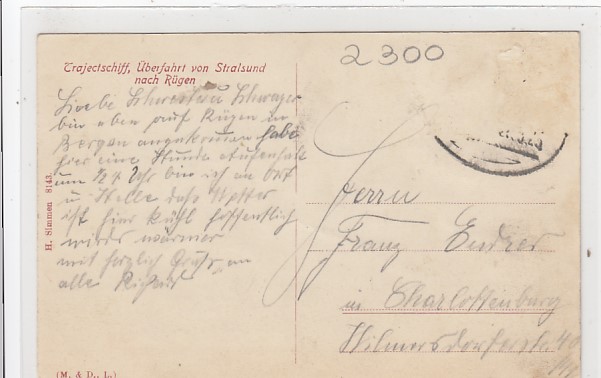 2300
Trajectschiff, Überfahrt von Stralsund
nach Rügen
Liebe Schwester u Schwager
bin eben auf Rügen in
Bergen angekommen habe
hier eine Stunde Aufenthalt
um 1/2 4 Uhr bin ich an Ort
u Stelle das Wetter
ist hier kühl hoffentlich
wird's wärmer
mit herzlich Gruß an
alle Richard
H. Simmen 8143.
(M. & D., L.)
Herrn
Franz
in Charlottenburg
Wilmersdorferstr 40